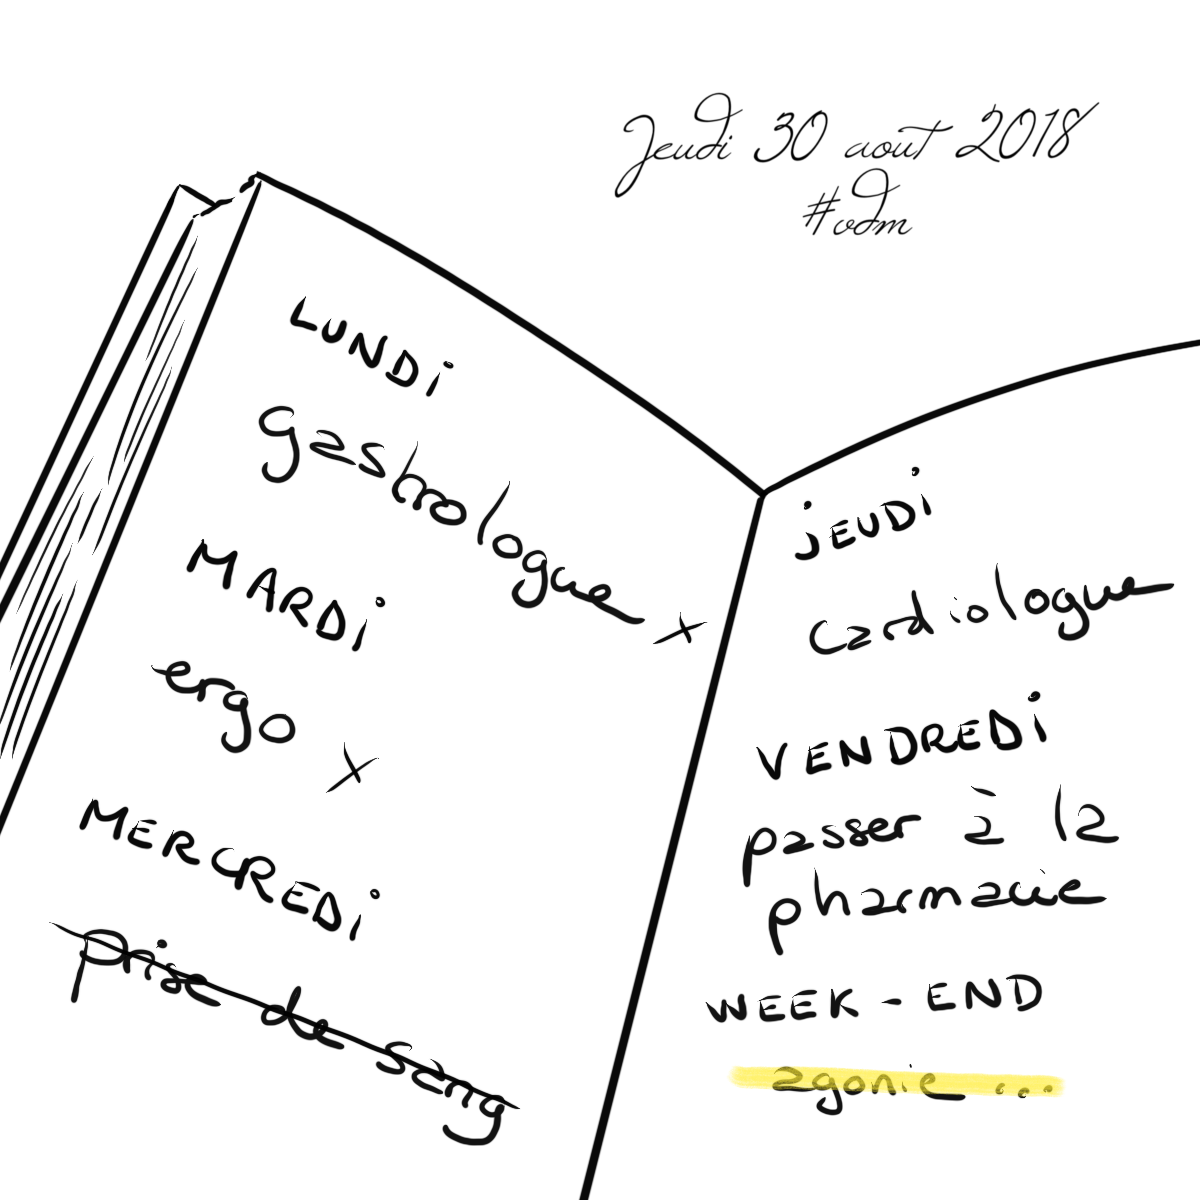 Jeudi 30 aout 2018
#vdm
LUNDi
gastrologue x
MARDi
ergo x
MERCREDi
prise de sang
jEUDi
cardiologue
VENDREDi
passer à la
pharmacie
WEEK-END
agonie...